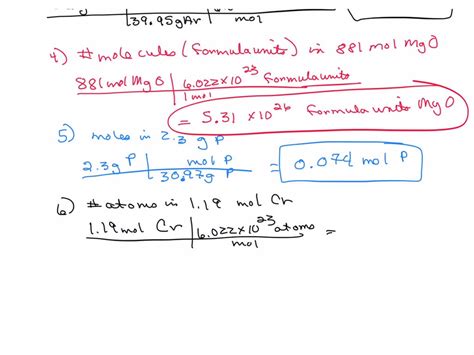 39.95gAr | mol
4) # molecules (formula units) in 881 mol MgO
881 mol MgO | 6.022×10²³ formula units
1 mol
= 5.31 ×10²⁶ formula units MgO
5) moles in 2.3 g P
2.3g P | mol P = 0.074 mol P
30.97g P
6) # atoms in 1.19 mol Cr
1.19 mol Cr | 6.022×10²³ atoms =
mol